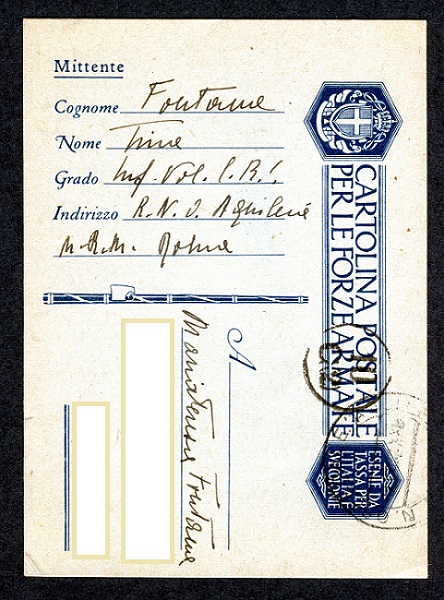 Mittente
Cognome Fontana
Nome Tina
Grado Inf. Vol. C.R.I.
Indirizzo R.N.O. Aquileia
M.R.M. Roma
A
Fontana
CARTOLINA POSTALE
PER LE FORZE ARMATE
ESENTE DA
TASSA PER
L'ITALIA E
SVE COLONIE